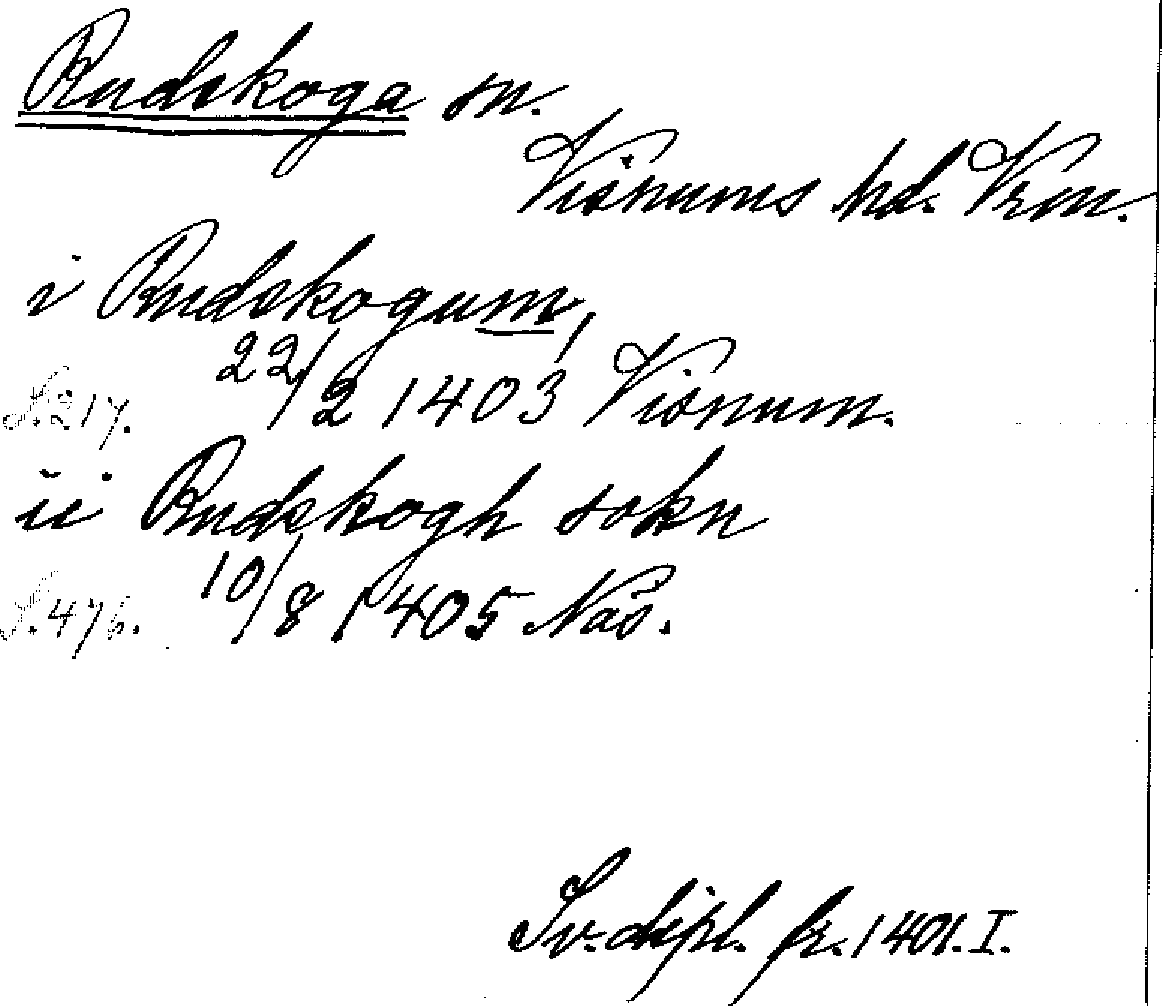 Rudskoga sn.
Visnums hd. Vrm.
i Rudskogum,
S. 217. 22/2 1403 Visnum.
ii Rudskogh sokn
S. 476. 10/8 1405 Näs.
Sv. dipl. fr. 1401. I.